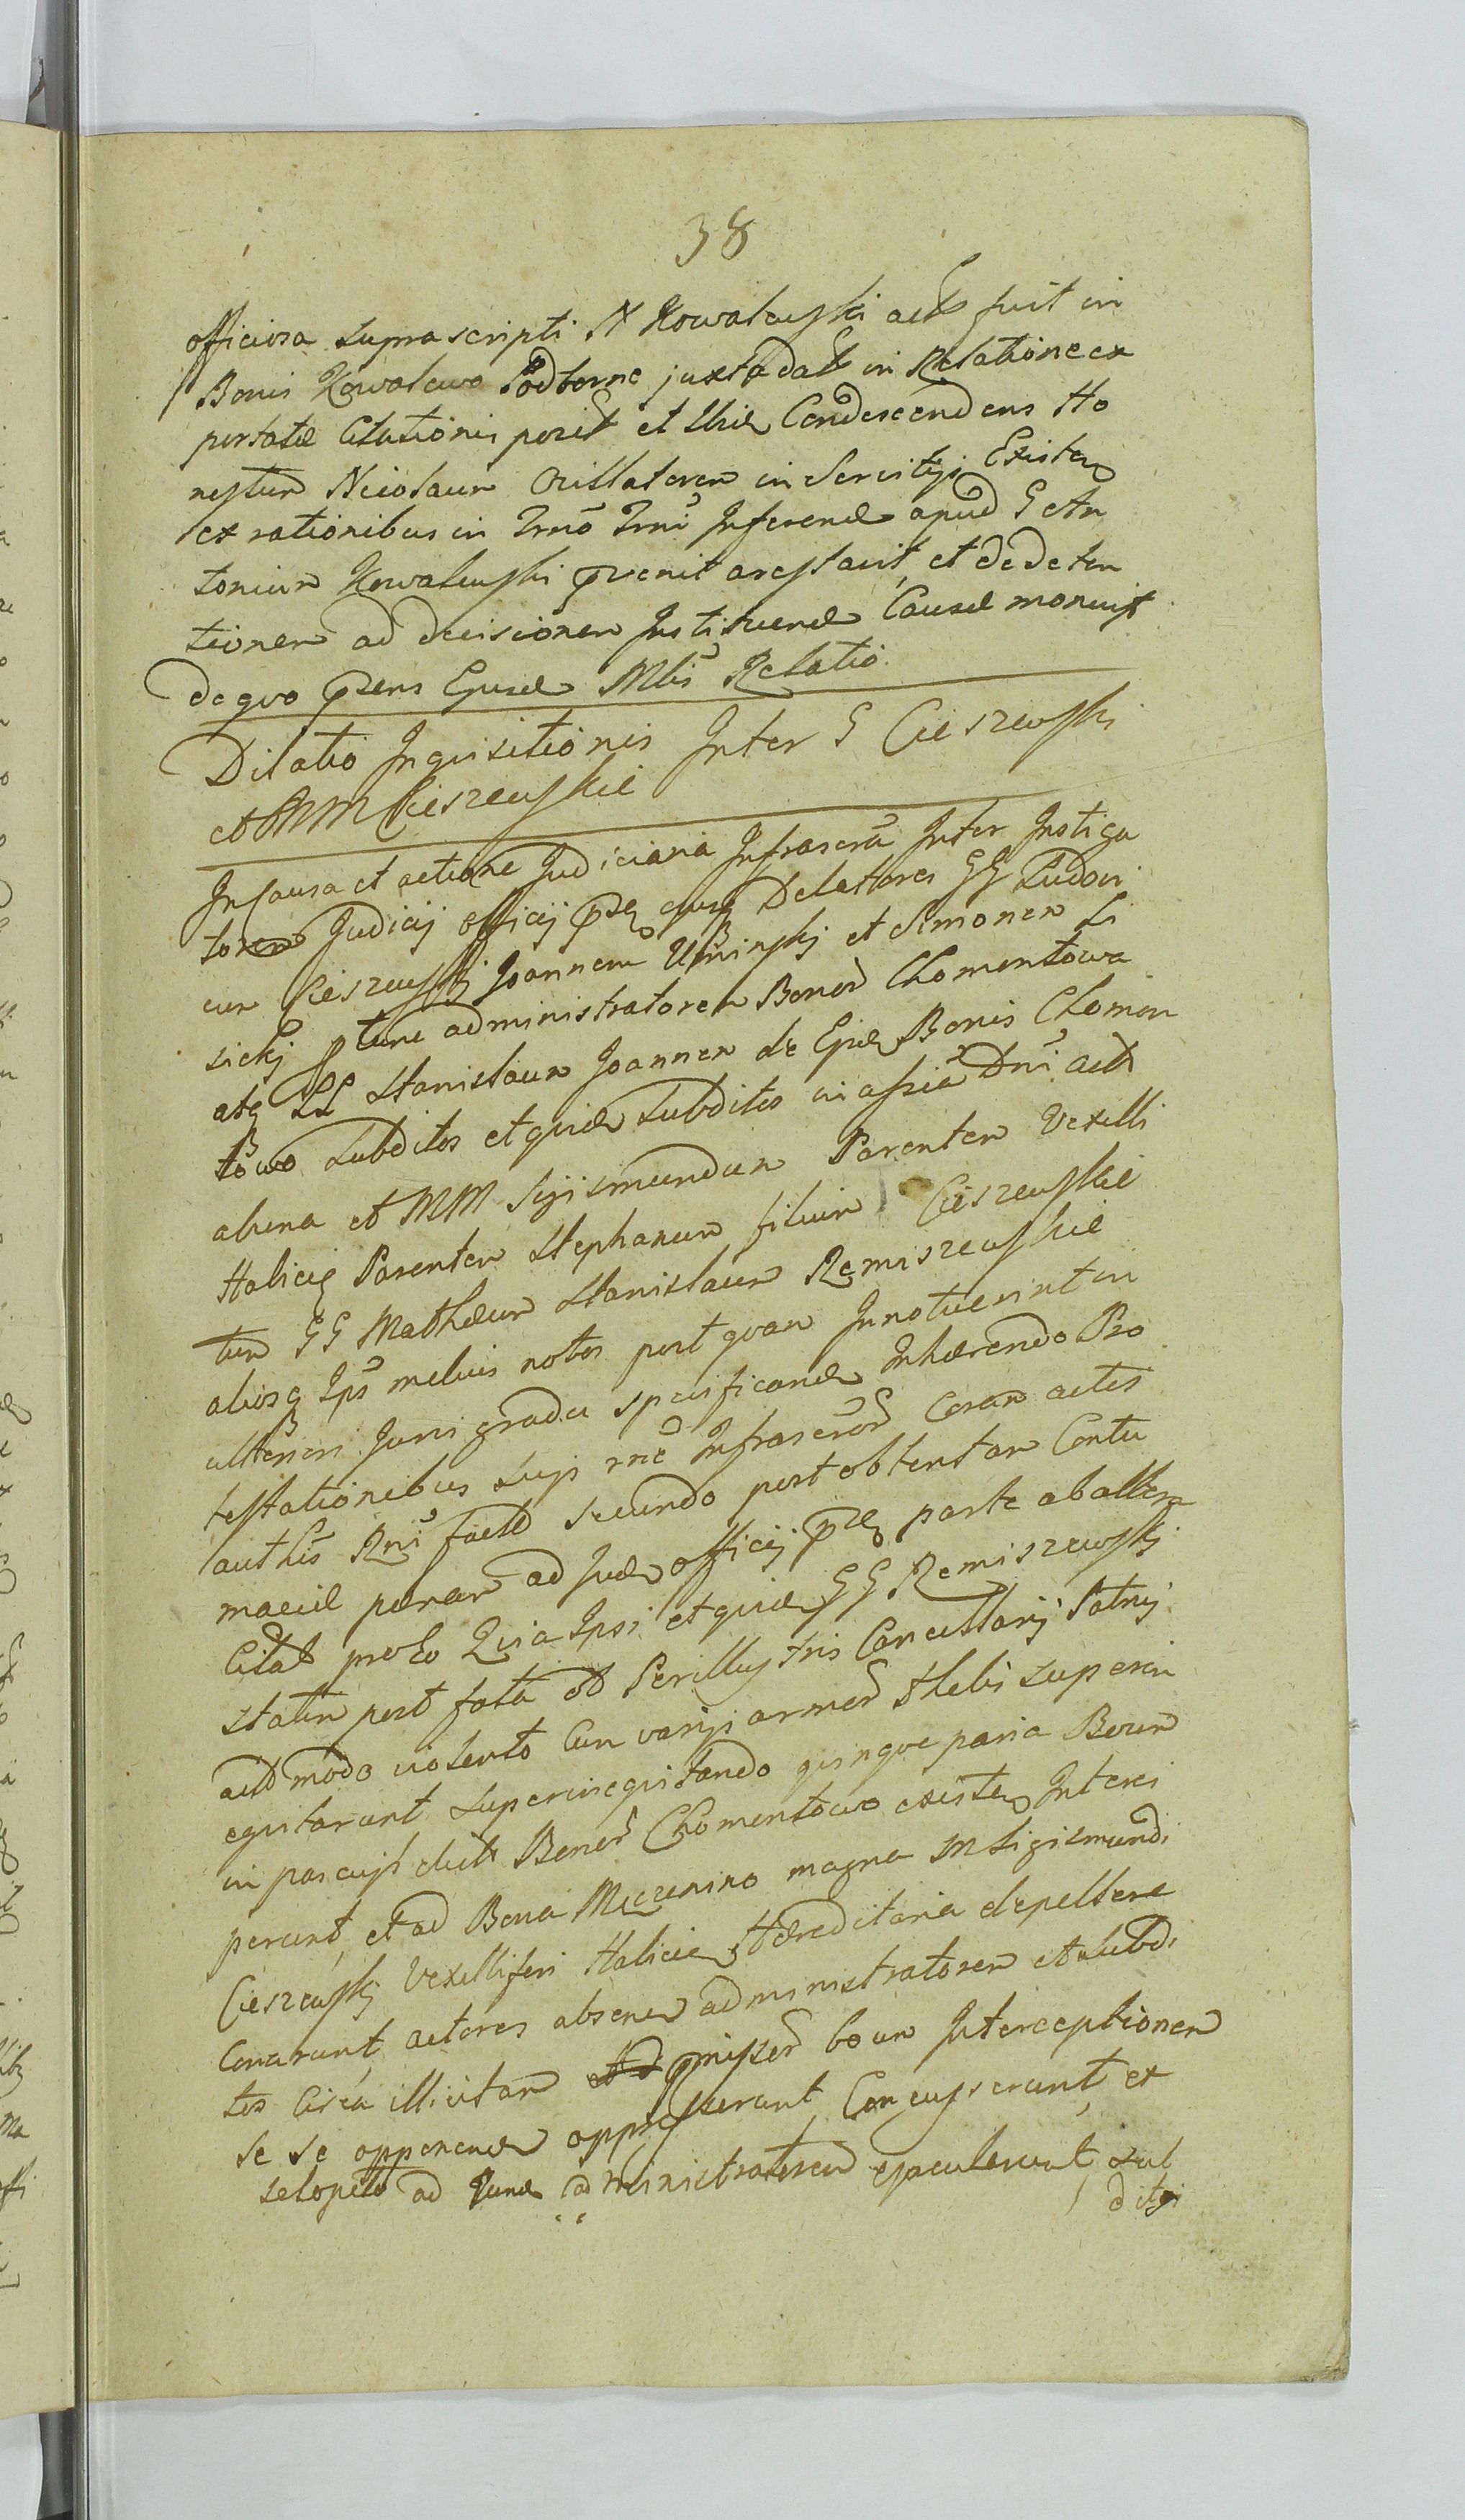 38
officiosa supra scripti N Kowalewski act fuit in
Bonis Kowalewo Podborne juxta dat in Relatione ex
portatæ Citationis posit et Condescendens Ho
nestum Nicolaum in Servitijs Existen
ex rationibus in Trnō Trnī Inferend apud G An
tonium Kowalewski pvenit arestavit et de deten
tionem ad decisionem Instituend Causæ monuit
de quo pzens Ejusd Mlis Relatio.
Dilatio Inquisitionis Inter G Cieszewski
et MM Cieszewskie
In Causa et actione Judiciaria Infrascra Inter Instiga
torem Judicij officij pzn ejusq Delatores GG Ludovi
cum Cieszewskj Joannem Uminskj et Simonem Li
sickj tunc administratorem Bonor Chomentowa
atq LL Stanislaum Joannem de Ejusd Bonis Chomen
towo subditos et quid subditos in assia Dnī act
abuna et MM Sigismundum Parentem Vexilli
Haliciej Parentem Stephanum filium Cieszewskie
tum GG Mathæum Stanislaum Remiszewskie
aliosq Ips melius notos post quam Innotuerint in
ulteriori Juris gradu specificand Inhærendo Pro
testationibus suis rne Infrascror Coram actis
authis Rnī fact secundo post obtentam Contu
maciæ pænam ad Jud officij pzn parte ab altera
Citat pro eo Quia Ipsi et quid GG Remiszewskj
statim post fata ol Perillustris Cancellarij Patrij
act modo violento Cum varijs armor Superin
equitarunt superinequitando quinque paria Boum
in pascujs dict Bonor Chomentowo existen Interci
perunt, et ad Bona Mezenino magna M Sigismundi
Cieszewskj Vexilliferi Haliciej Hæreditaria depellere
Conarunt, actores absend administratorem et subdi
tos Circa illicitam pmissor boum Interceptionem
se se opponend oppresserunt, Concusserunt, ex
sclopeto ad Jund administratorem ejaculerunt, sub
ditos